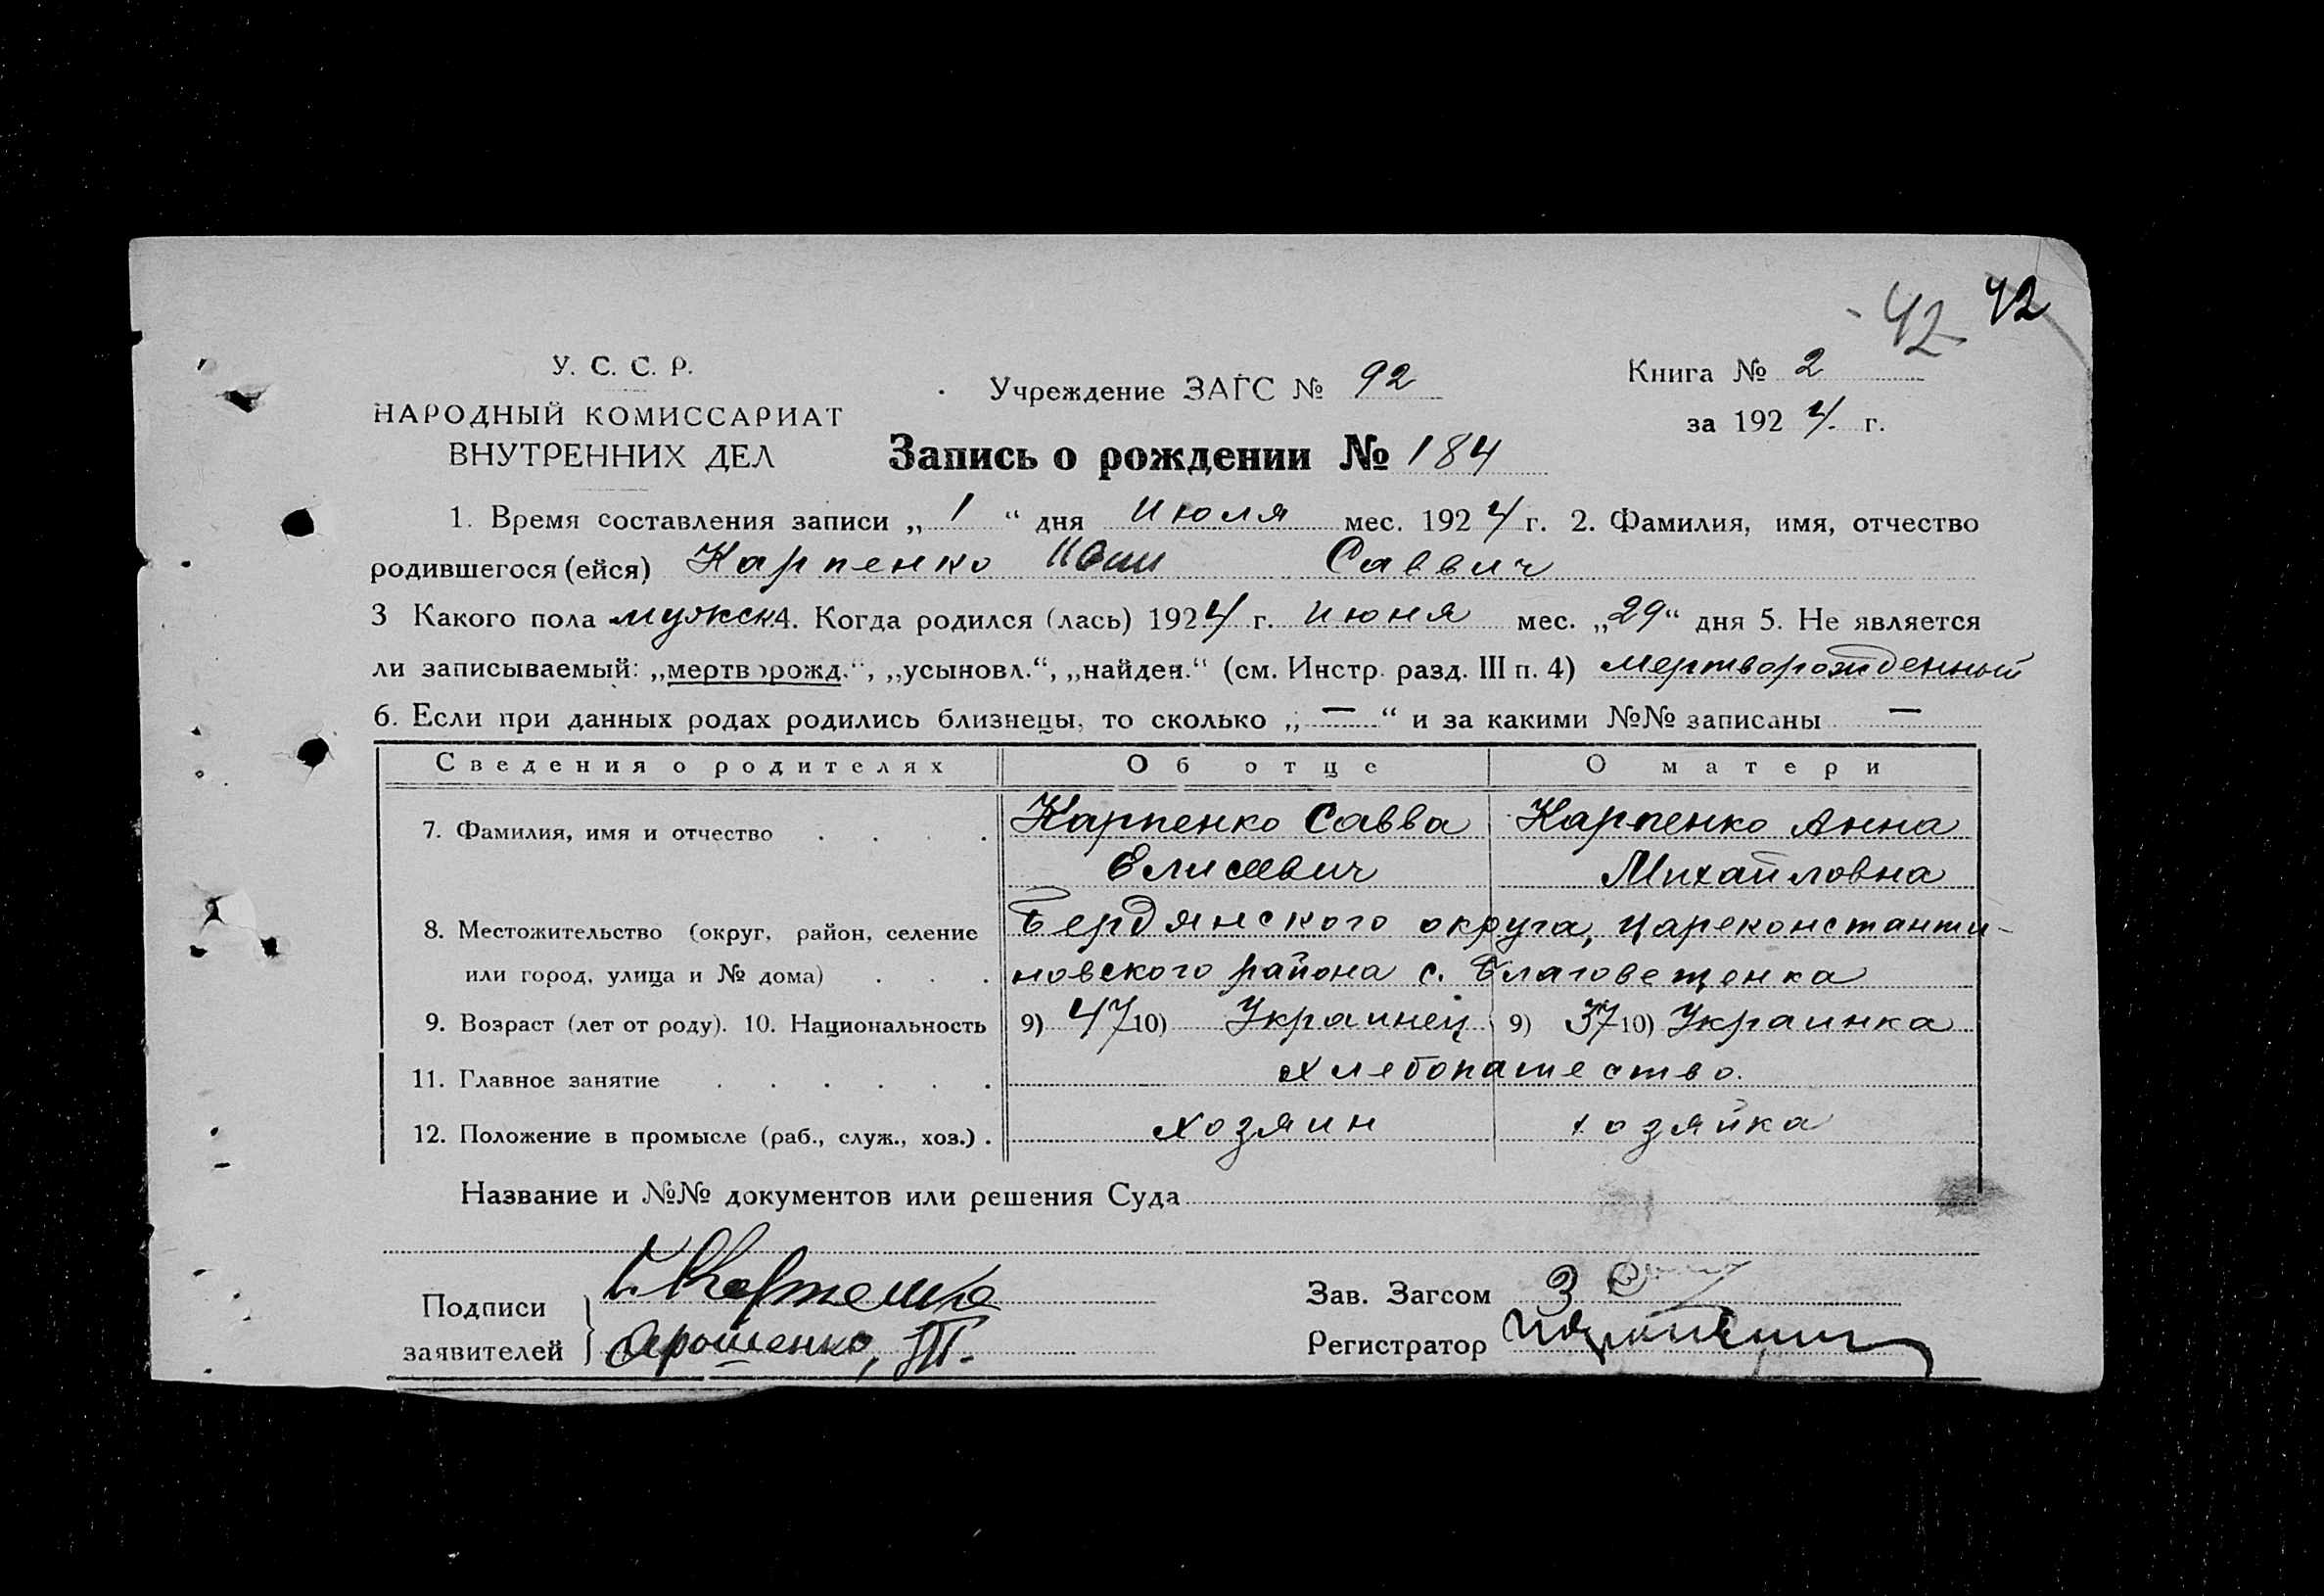 42 42
У. С. С. Р.
НАРОДНЫЙ КОМИССАРИАТ
ВНУТРЕННИХ ДЕЛ
Учреждение ЗАГС № 92
Книга № 2
за 1924 г.
Запись о рождении № 184
1. Время составления записи „ 1 “ дня Июля мес. 1924 г. 2. Фамилия, имя, отчество
родившегося (ейся) Карпенко Саввич
3 Какого пола мужск. 4. Когда родился (лась) 1924 г. июня мес. „29“ дня 5. Не является
ли записываемый: „мертворожд.“, „усыновл.“, „найден.“ (см. Инстр. разд. III п. 4) мертворожденный
6. Если при данных родах родились близнецы, то сколько „ — “ и за какими №№ записаны —
Сведения о родителях Об отце О матери
7. Фамилия, имя и отчество . . . . Карпенко Савва Карпенко Анна
Елисеевич Михайловна
8. Местожительство (округ, район, селение Бердянского округа, Цареконстанти-
или город, улица и № дома) . . . новского района с. Благовещенка
9. Возраст (лет от роду). 10. Национальность 9) 47 10) Украинец 9) 37 10) Украинка
11. Главное занятие . . . . . . хлебопашество.
12. Положение в промысле (раб., служ., хоз.) . хозяин хозяйка
Название и №№ документов или решения Суда
Подписи
заявителей
Карпенко
Ярошенко,
Зав. Загсом
Регистратор